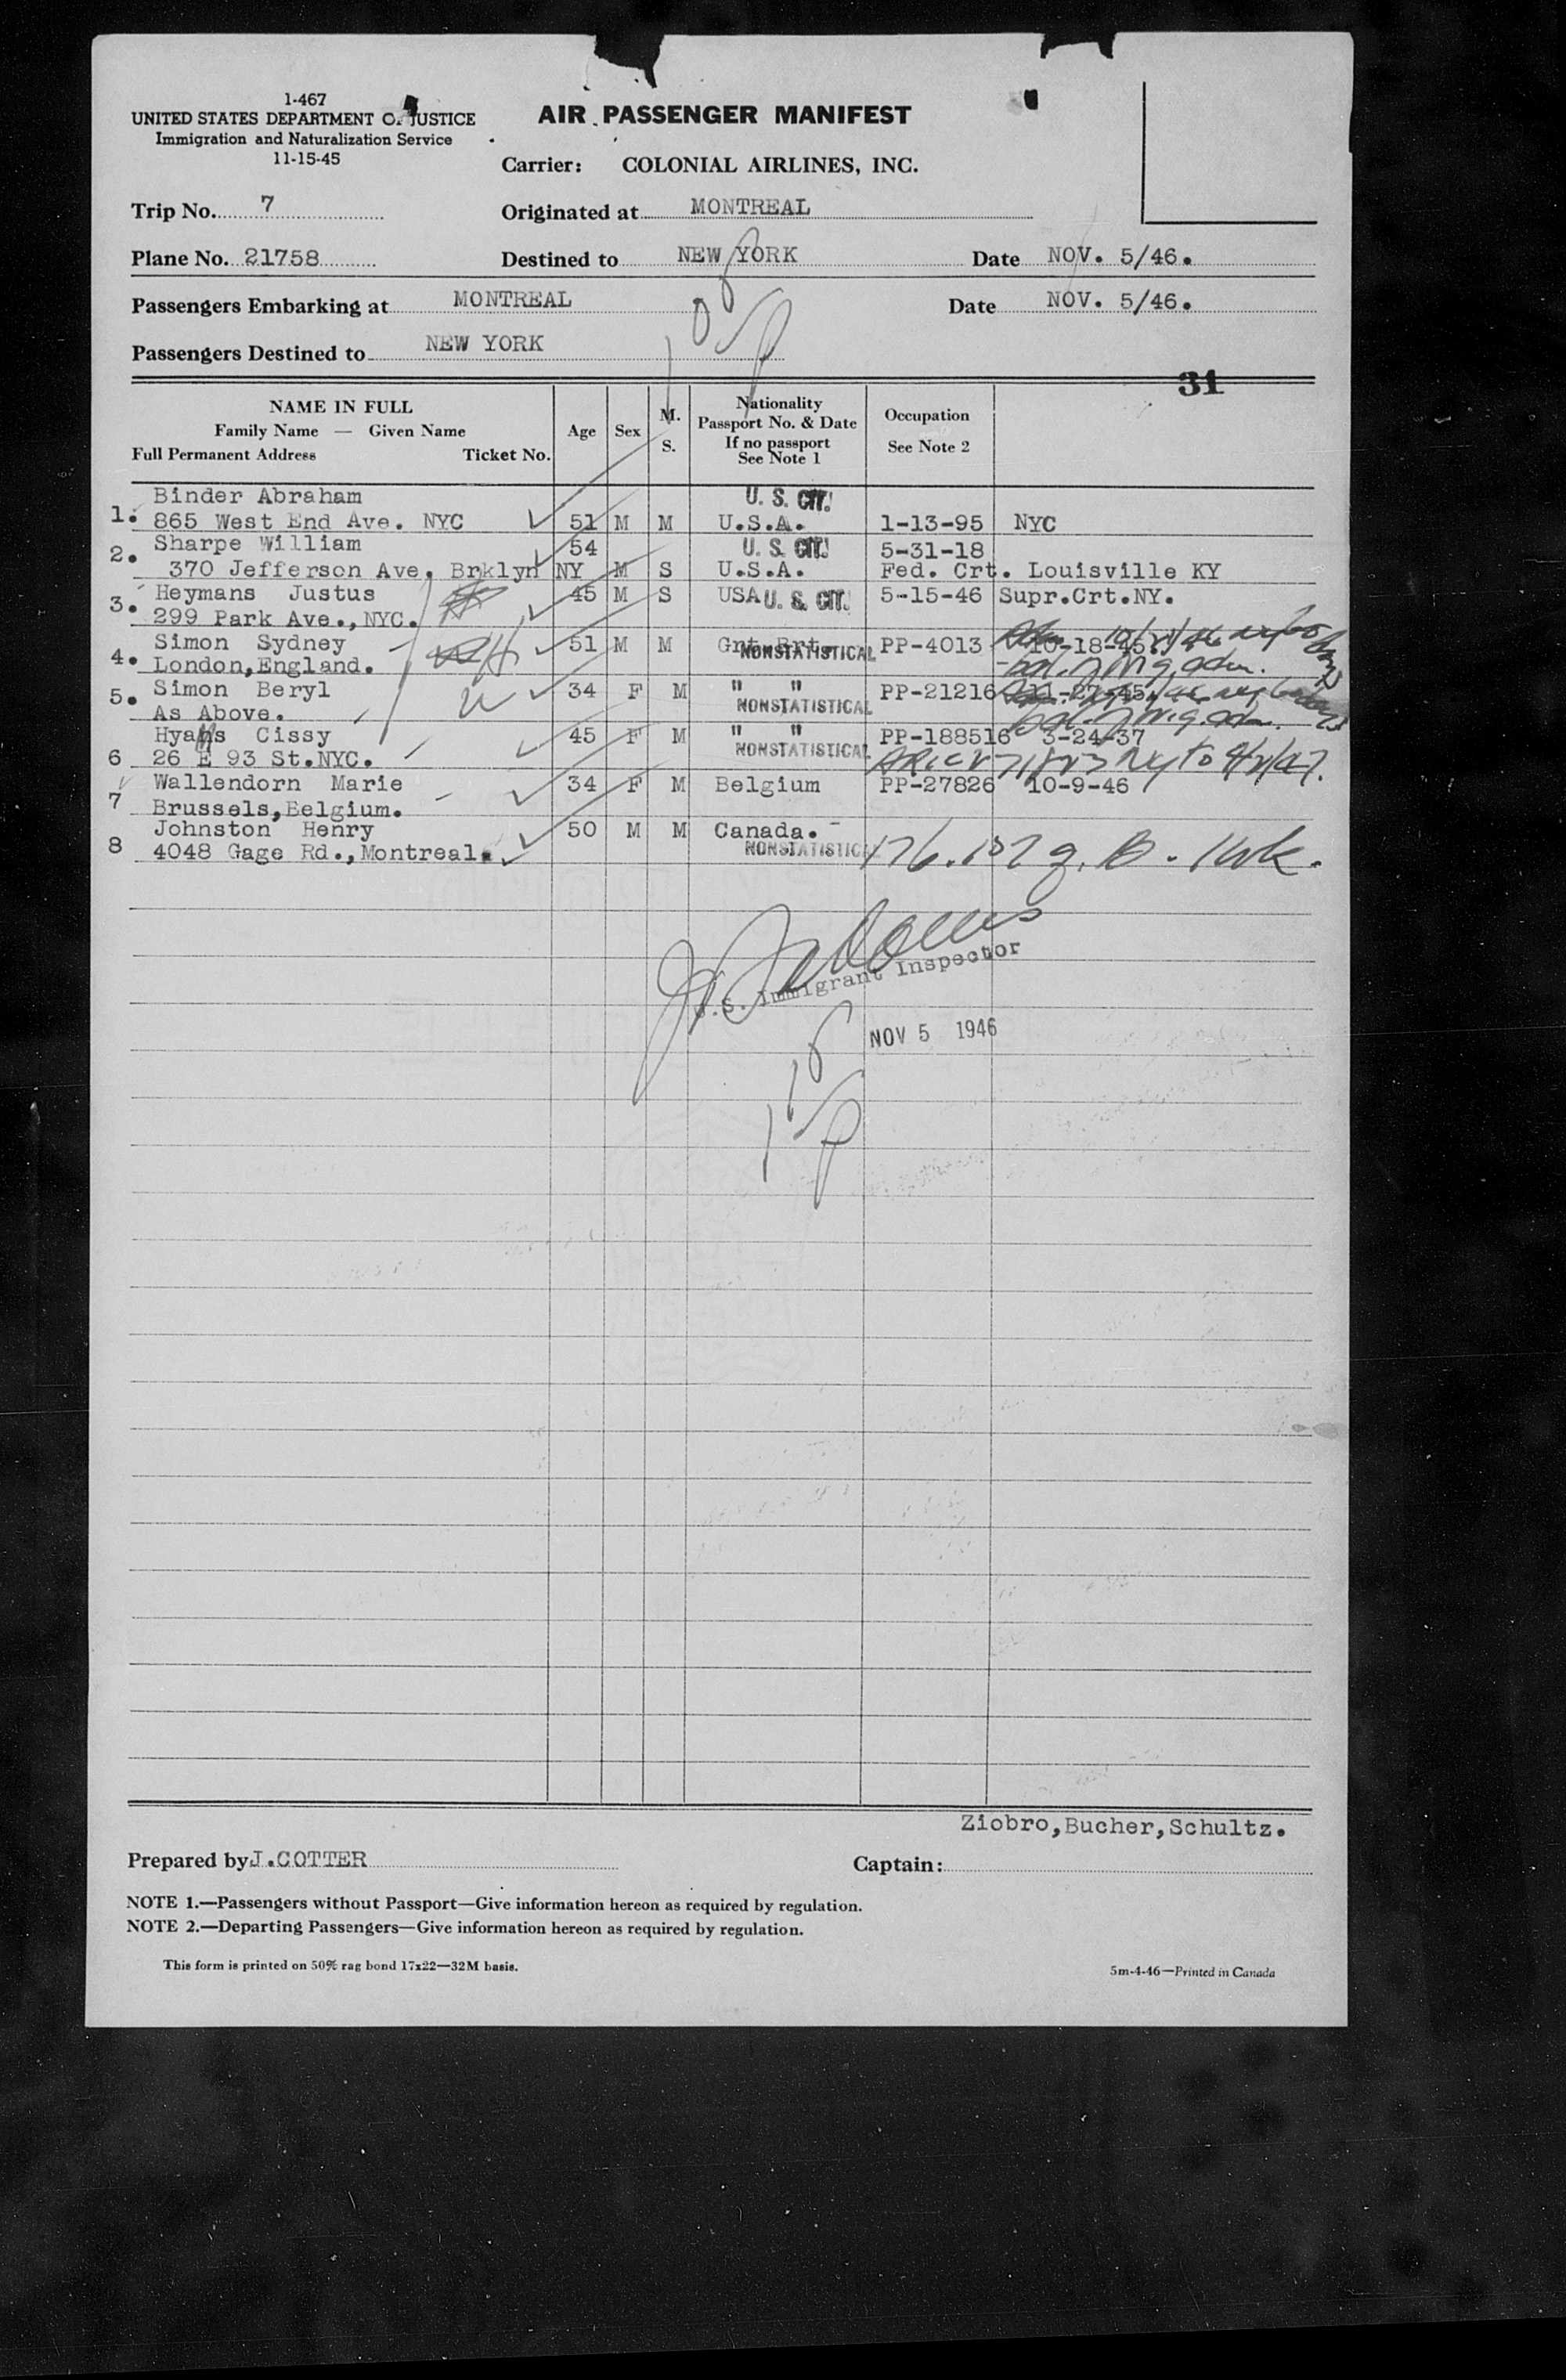 1-467
UNITED STATES DEPARTMENT OF JUSTICE
Immigration and Naturalization Service
11-15-45
AIR PASSENGER MANIFEST
Carrier: COLONIAL AIRLINES, INC.
Trip No. 7 Originated at MONTREAL
Plane No. 21758 Destined to NEW YORK Date NOV. 5/46.
Passengers Embarking at MONTREAL Date NOV. 5/46.
Passengers Destined to NEW YORK
31
NAME IN FULL
Family Name — Given Name
Full Permanent Address Ticket No.
Age
Sex
M.
S.
Nationality
Passport No. & Date
If no passport
See Note 1
Occupation
See Note 2
Binder Abraham U. S. CIT.
1. 865 West End Ave. NYC 51 M M U.S.A. 1-13-95 NYC
2. Sharpe William 54 U. S. CIT. 5-31-18
370 Jefferson Ave, Brklyn NY M S U.S.A. Fed. Crt. Louisville KY
3. Heymans Justus 45 M S USA U. S. CIT. 5-15-46 Supr.Crt.NY.
299 Park Ave., NYC.
4. Simon Sydney 51 M M Grt.Brt. PP-4013 10-18-45
London, England. NONSTATISTICAL
5. Simon Beryl 34 F M " " PP-21216 11-27-45
As Above. NONSTATISTICAL
Hyams Cissy 45 F M " " PP-188516 3-24-37
6 26 E 93 St.NYC. NONSTATISTICAL
Wallendorn Marie 34 F M Belgium PP-27826 10-9-46
7 Brussels, Belgium.
Johnston Henry 50 M M Canada.
8 4048 Gage Rd., Montreal. NONSTATISTICAL
U.S. Immigrant Inspector
NOV 5 1946
Ziobro, Bucher, Schultz.
Prepared by J.COTTER Captain:
NOTE 1.—Passengers without Passport—Give information hereon as required by regulation.
NOTE 2.—Departing Passengers—Give information hereon as required by regulation.
This form is printed on 50% rag bond 17x22—32M basis. 5m-4-46—Printed in Canada